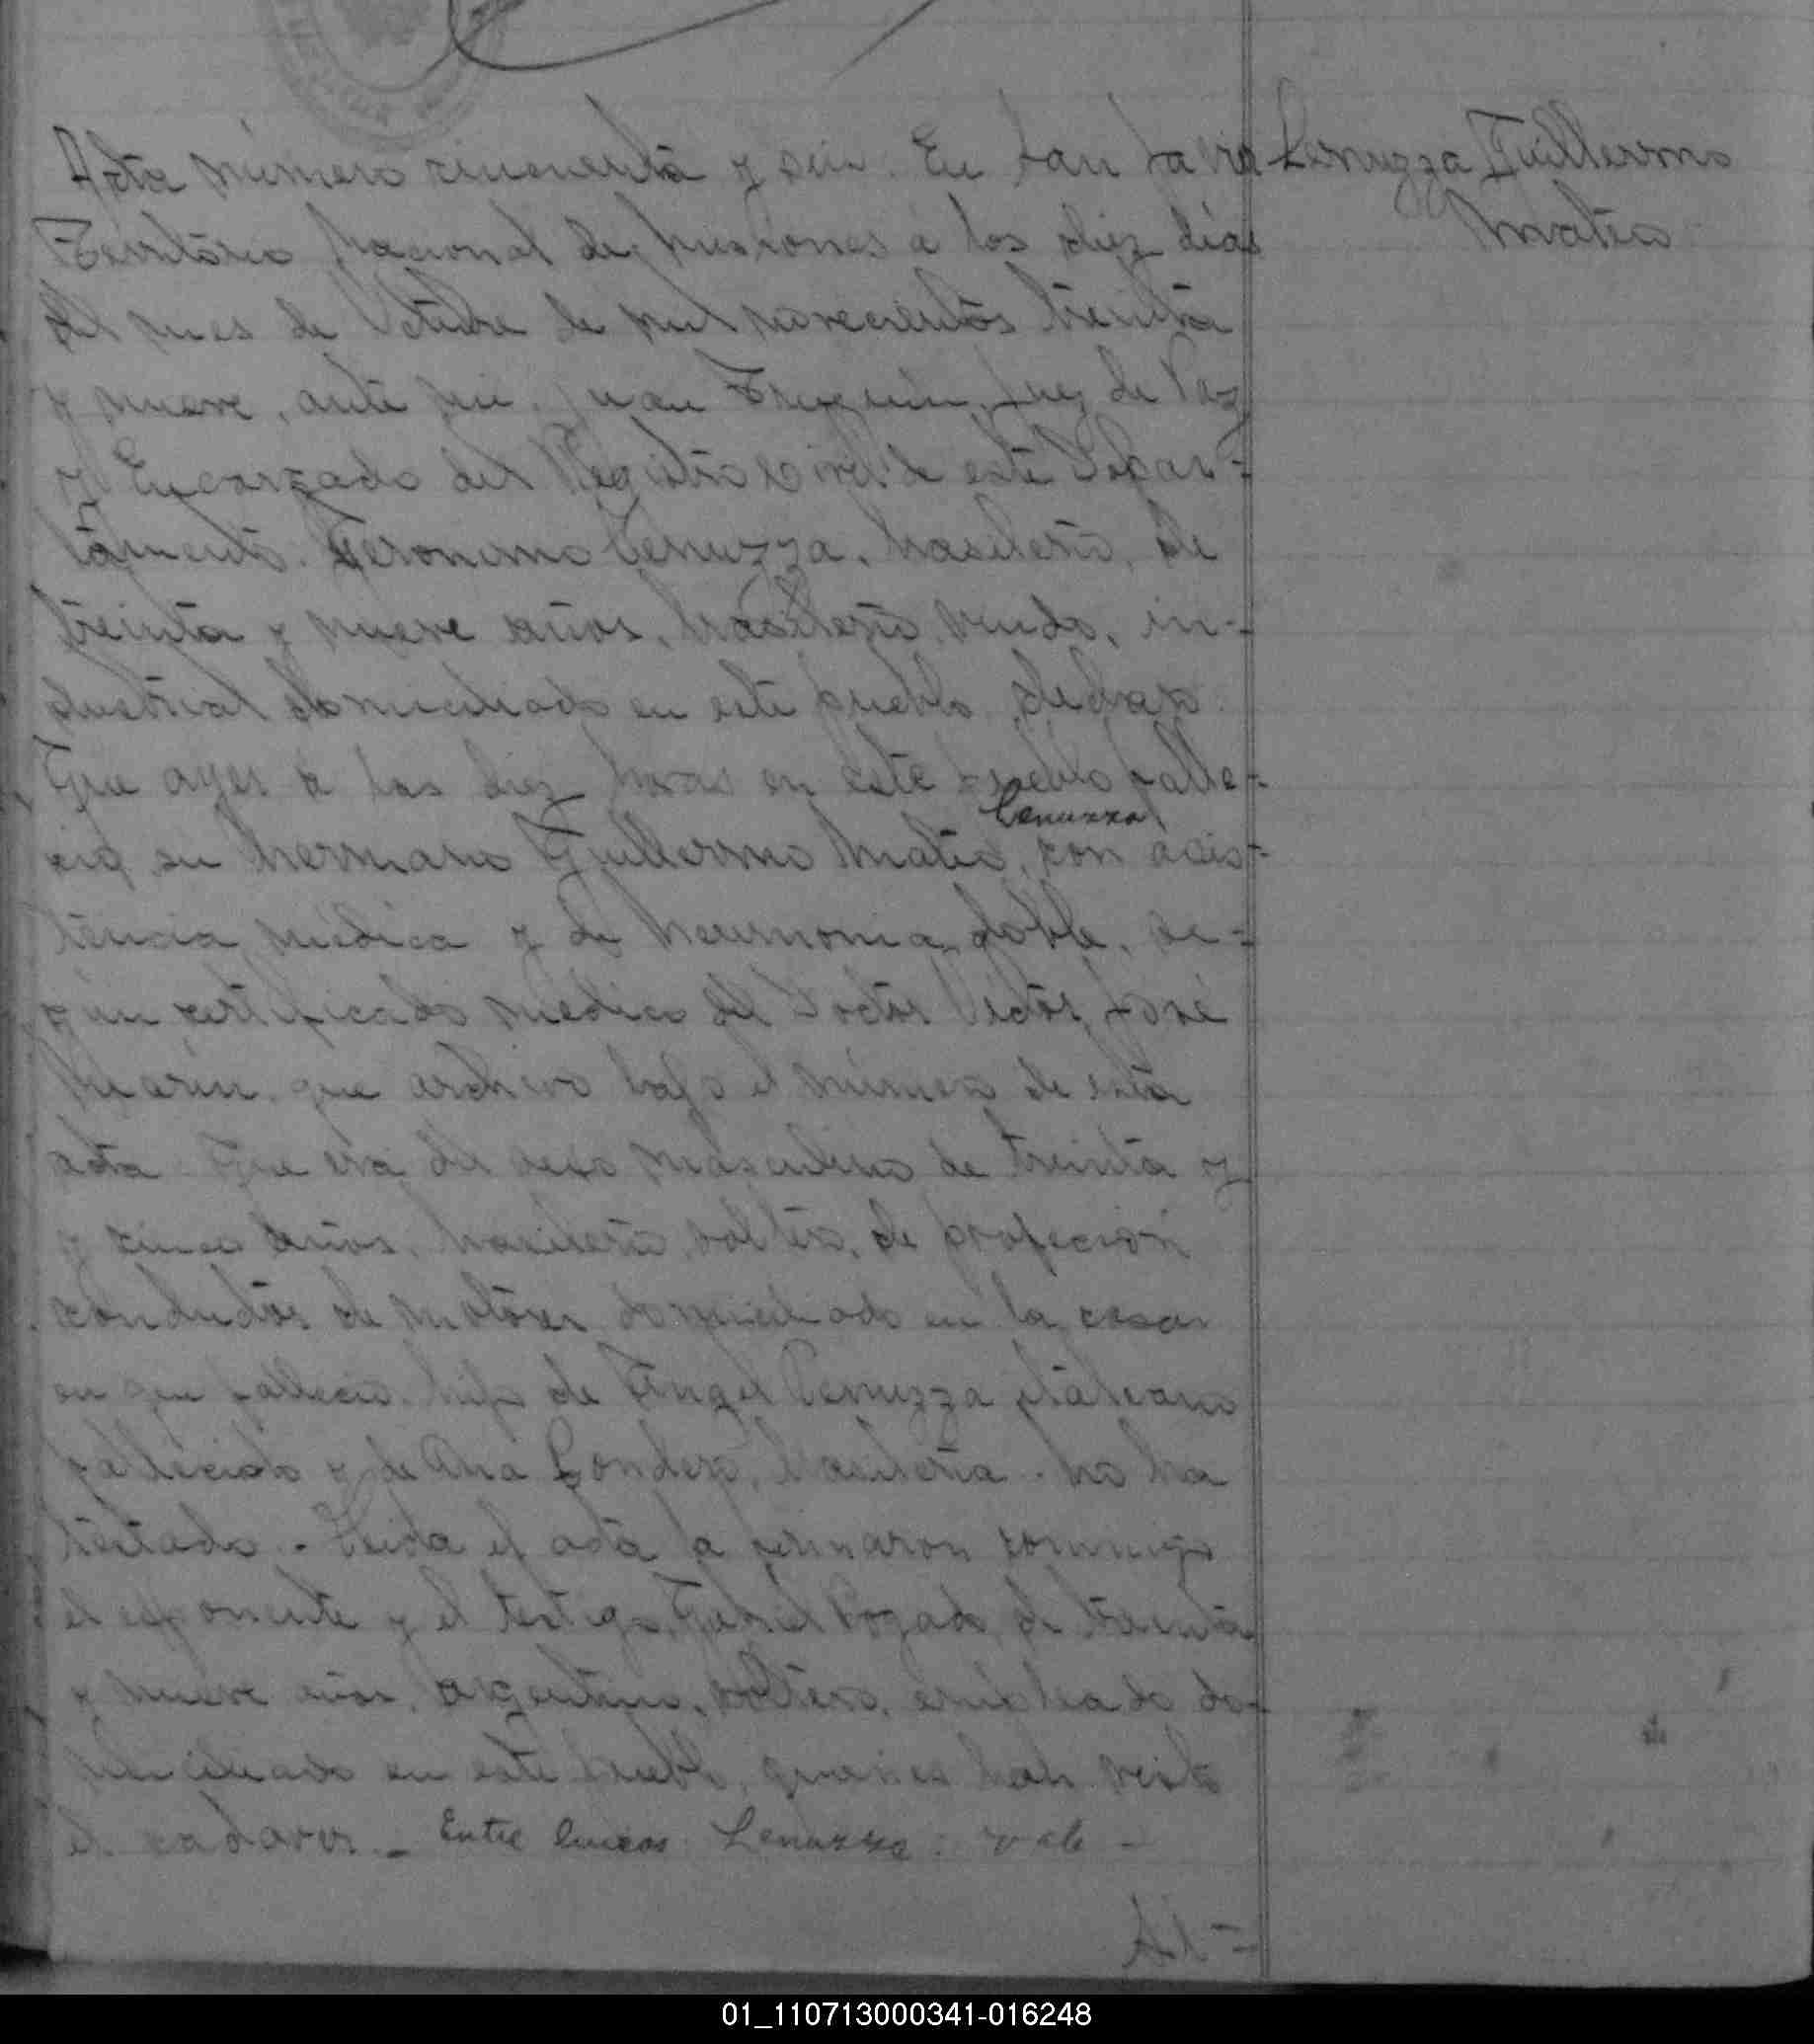 Acta número cincuenta y seis. En San Javier
Lenuzza Guillermo
Mateo
Territorio Nacional de Misiones a los diez días
del mes de Octubre de mil novecientos treinta
y nueve, ante mi, Juan Juez de Paz
y Encargado del Registro Civil de este Depar=
tamento. Geronimo Cenuzza, brasileño, de
treinta y nueve años, brasileño viudo, in=
dustrial domiciliado en este pueblo, declaro:
Que ayer a las diez horas en este pueblo falle=
Cenuzza
ció su hermano Guillermo Mateo, con acis=
tencia médica y de neumonia doble, se=
gún certificado médico del Doctor Victor José
Marin que archivo bajo el número de esta
acta. Que era del sexo masculino de treinta y
y cinco años, brasileño, soltero, de profecion
conductor de motores domiciliado en la casa
en que fallecio, hijo de Angel Cenuzza italiano
fallecido y de Ana Londero, brasileña. No ha
testado. Leida el acta la firmaron conmigo
el exponente y el testigo, Gabriel Pozado, de treinta
y nueve años, argentino, soltero, empleado do=
miciliado en este pueblo, quienes han visto
el cadaver. - Entre lineas: Lenuzza: vale -